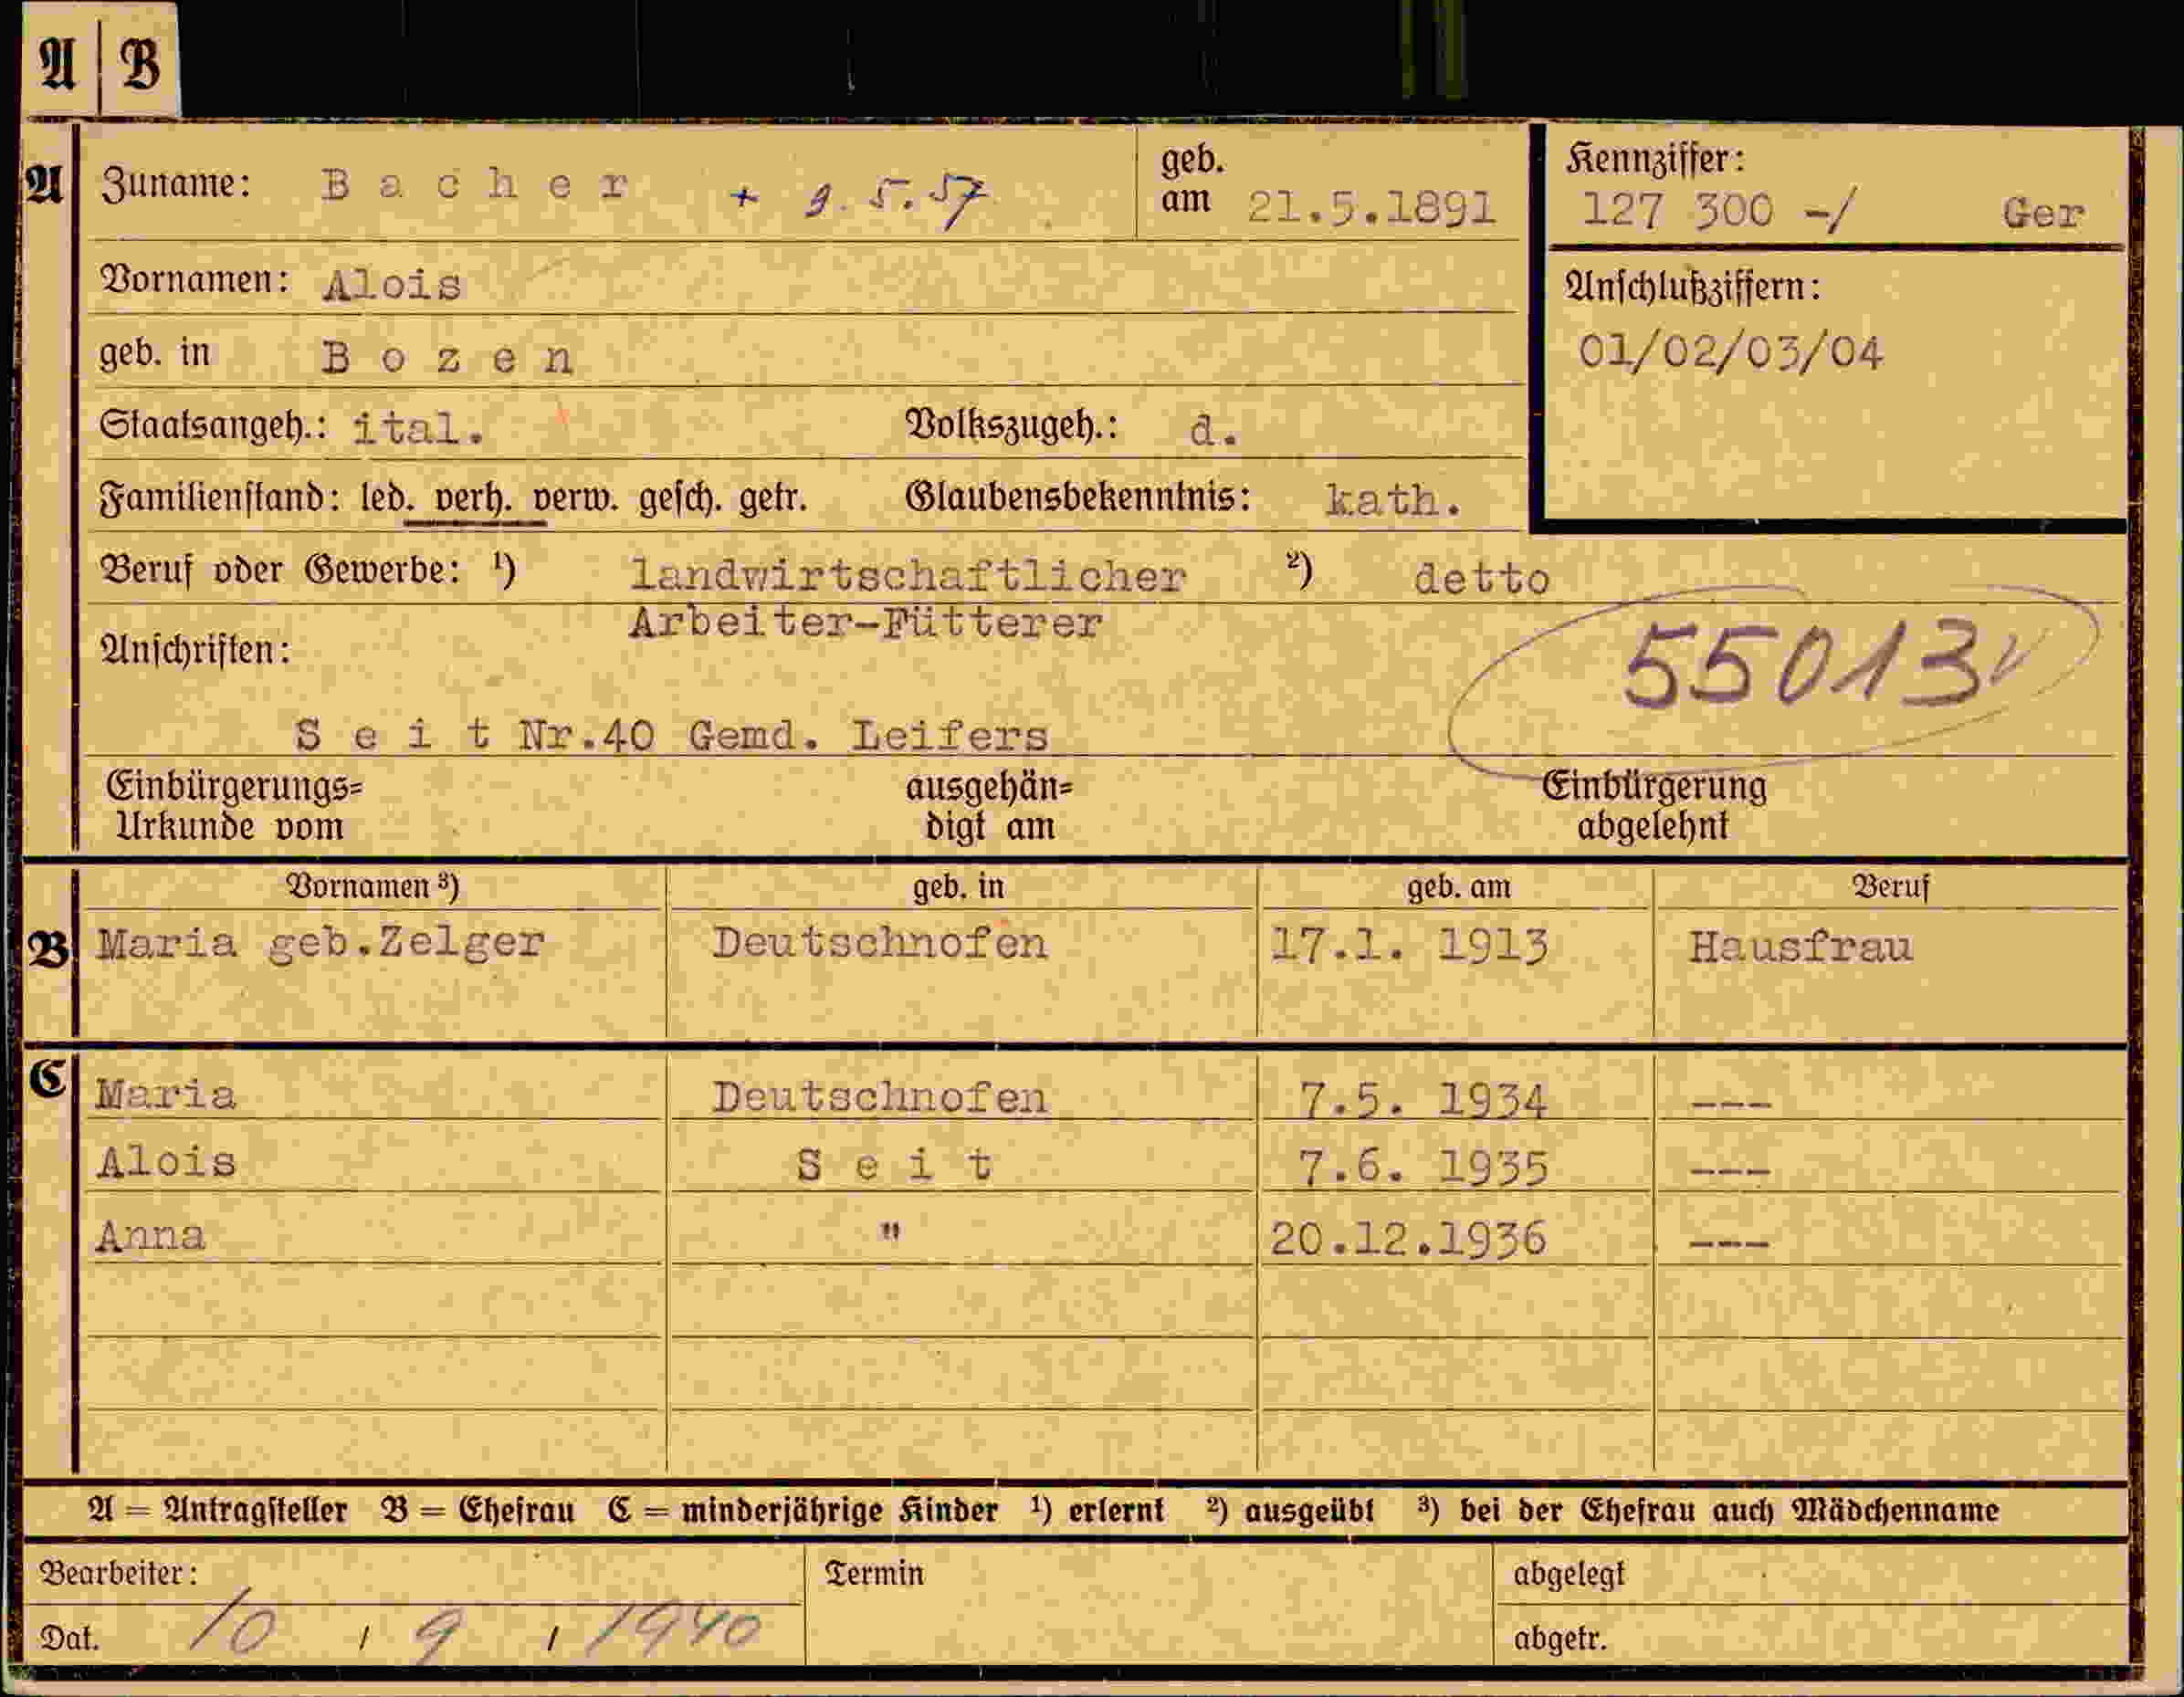 A | B
A Zuname: Bacher + 9.5.57 geb. am 21.5.1891
Kennziffer:
127 300 -/ Ger
Vornamen: Alois
Anschlußziffern:
01/02/03/04
geb. in Bozen
Staatsangeh.: ital. Volkszugeh.: d.
Familienstand: led. verh. verw. gesch. getr. Glaubensbekenntnis: kath.
Beruf oder Gewerbe: ¹) landwirtschaftlicher ²) detto
Arbeiter-Fütterer
Anschriften:
55013
Seit Nr.40 Gemd. Leifers
Einbürgerungs= ausgehän= Einbürgerung
Urkunde vom digt am abgelehnt
Vornamen ³) geb. in geb. am Beruf
B Maria geb.Zelger Deutschnofen 17.1. 1913 Hausfrau
C Maria Deutschnofen 7.5. 1934 ---
Alois Seit 7.6. 1935 ---
Anna " 20.12.1936 ---
A = Antragsteller B = Ehefrau C = minderjährige Kinder ¹) erlernt ²) ausgeübt ³) bei der Ehefrau auch Mädchenname
Bearbeiter: Termin abgelegt
Dat. 10 / 9 / 1940 abgetr.